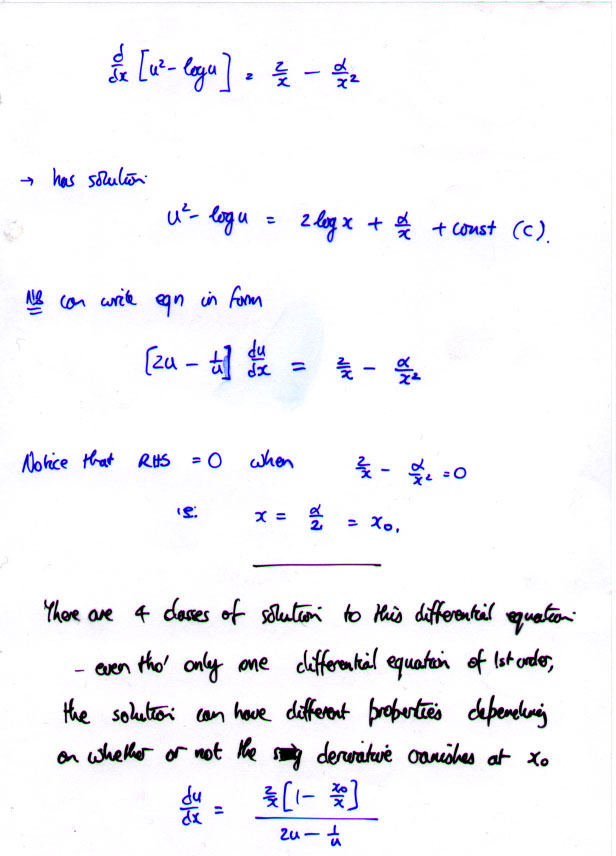 d/dx [u² - log u] = 2/x - α/x²
→ has solution
u² - log u = 2 log x + α/x + const (C).
NB can write eqn in form
[2u - 1/u] du/dx = 2/x - α/x²
Notice that RHS = 0 when 2/x - α/x² = 0
ie. x = α/2 = x₀.
There are 4 classes of solution to this differential equation
- even tho' only one differential equation of 1st order,
the solution can have different properties depending
on whether or not the derivative vanishes at x₀
du/dx = 2/x [1 - x₀/x] / (2u - 1/u)